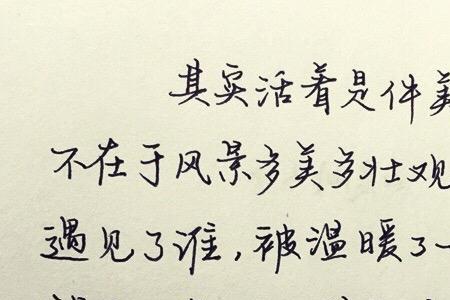 其实活着是件美
不在于风景多美多壮观
遇见了谁,被温暖了一